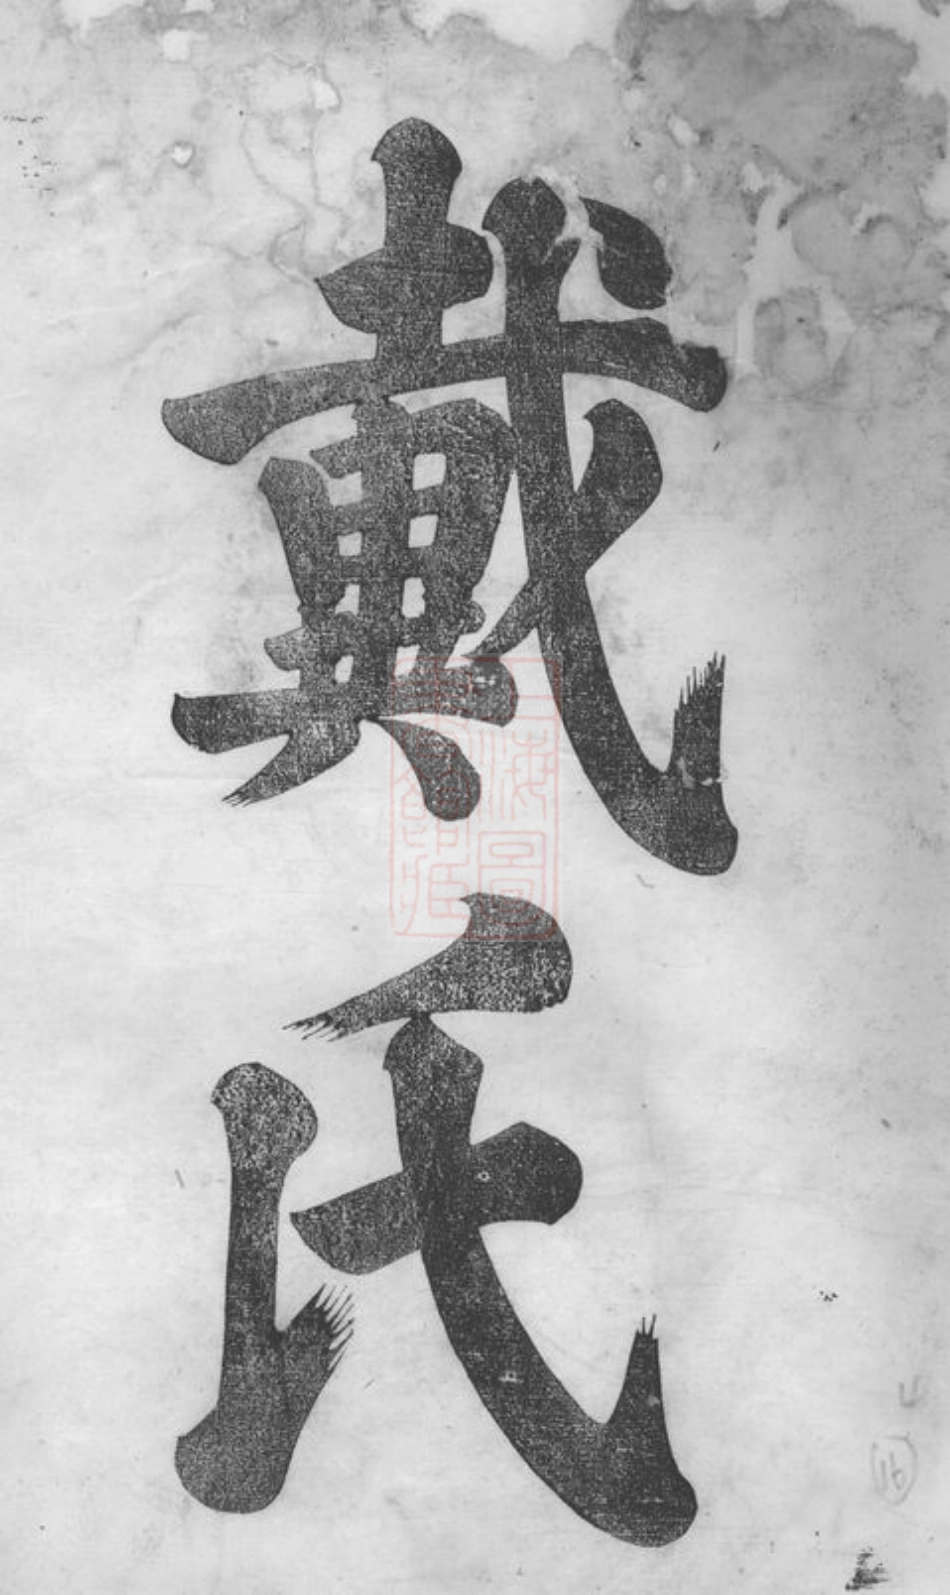 戴氏
16